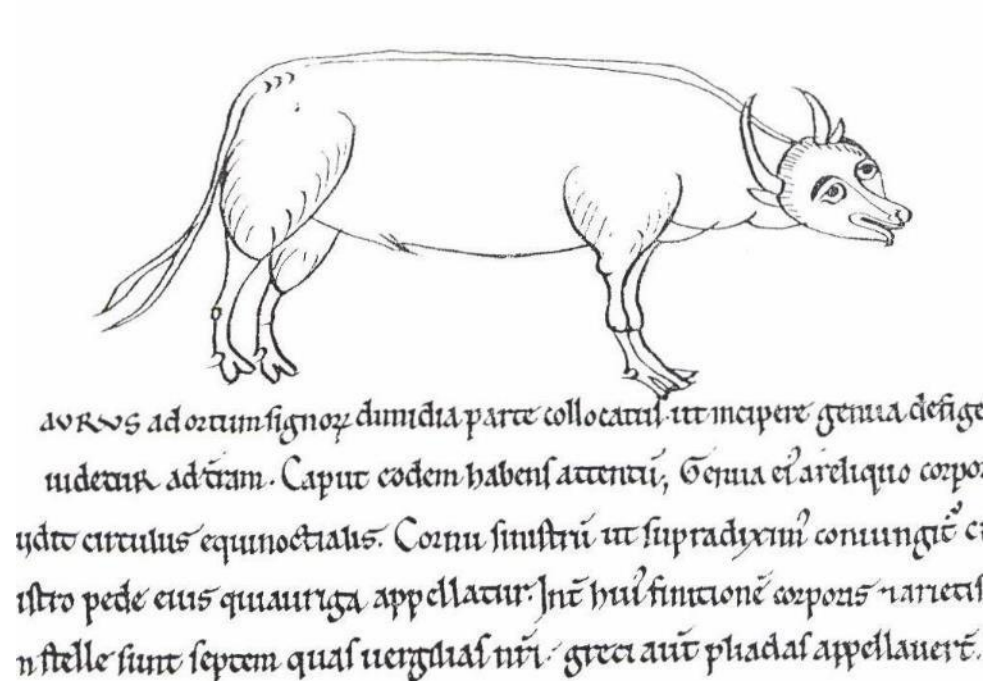 AURUS ad ortum signoꝝ dimidia parte collocatus. ut incipere genua defige
uidetur ad tr̄am. Caput eodem habens attentū; Genua ei᾿ a reliquo corpor
ydit circulus equinoctialis. Cornu sinistrū ut supradiximꝰ coniungit᷑ c
istro pede eius qui auriga appellatur. Int̄ huiꝰ finitionē corporis ⁊ arietis
n stelle sunt septem quas uergilias nr̄i. greci aut̄ pliadas appellauer̄t.